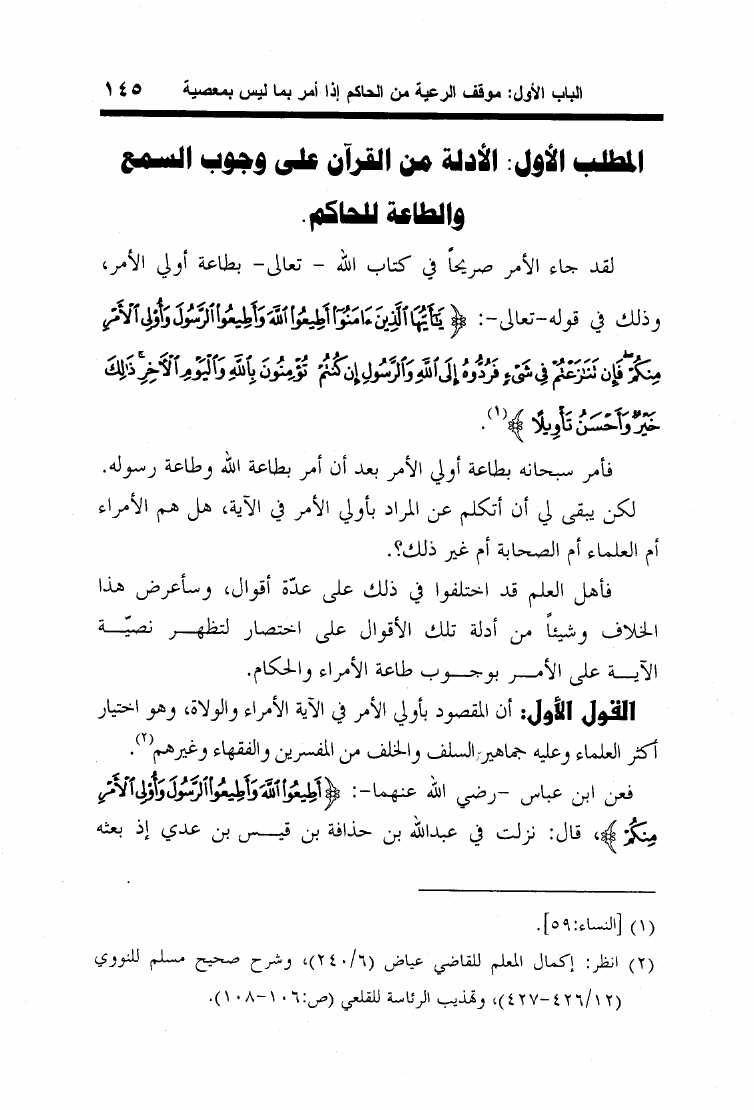 الباب الأول: موقف الرعية من الحاكم إذا أمر بما ليس بمعصية ١٤٥
المطلب الأول: الأدلة من القرآن على وجوب السمع
والطاعة للحاكم.
لقد جاء الأمر صريحاً في كتاب الله - تعالى- بطاعة أولي الأمر،
وذلك في قوله-تعالى-: ﴿يَٰٓأَيُّهَا ٱلَّذِينَ ءَامَنُوٓاْ أَطِيعُواْ ٱللَّهَ وَأَطِيعُواْ ٱلرَّسُولَ وَأُوْلِي ٱلْأَمْرِ
مِنكُمْۖ فَإِن تَنَٰزَعْتُمْ فِي شَيْءٍ فَرُدُّوهُ إِلَى ٱللَّهِ وَٱلرَّسُولِ إِن كُنتُمْ تُؤْمِنُونَ بِٱللَّهِ وَٱلْيَوْمِ ٱلْأٓخِرِۚ ذَٰلِكَ
خَيْرٌ وَأَحْسَنُ تَأْوِيلًا﴾(١).
فأمر سبحانه بطاعة أولي الأمر بعد أن أمر بطاعة الله وطاعة رسوله.
لكن يبقى لي أن أتكلم عن المراد بأولي الأمر في الآية، هل هم الأمراء
أم العلماء أم الصحابة أم غير ذلك؟.
فأهل العلم قد اختلفوا في ذلك على عدّة أقوال، وسأعرض هذا
الخلاف وشيئاً من أدلة تلك الأقوال على اختصار لتظهر نصيّة
الآية على الأمر بوجوب طاعة الأمراء والحكام.
القول الأول: أن المقصود بأولي الأمر في الآية الأمراء والولاة، وهو اختيار
أكثر العلماء وعليه جماهير السلف والخلف من المفسرين والفقهاء وغيرهم(٢).
فعن ابن عباس -رضي الله عنهما-: ﴿أَطِيعُواْ ٱللَّهَ وَأَطِيعُواْ ٱلرَّسُولَ وَأُوْلِي ٱلْأَمْرِ
مِنكُمْ﴾، قال: نزلت في عبدالله بن حذافة بن قيس بن عدي إذ بعثه
(١) [النساء:٥٩].
(٢) انظر: إكمال المعلم للقاضي عياض (٢٤٠/٦)، وشرح صحيح مسلم للنووي
(٤٢٦/١٢-٤٢٧)، وتهذيب الرئاسة للقلعي (ص:١٠٦-١٠٨).